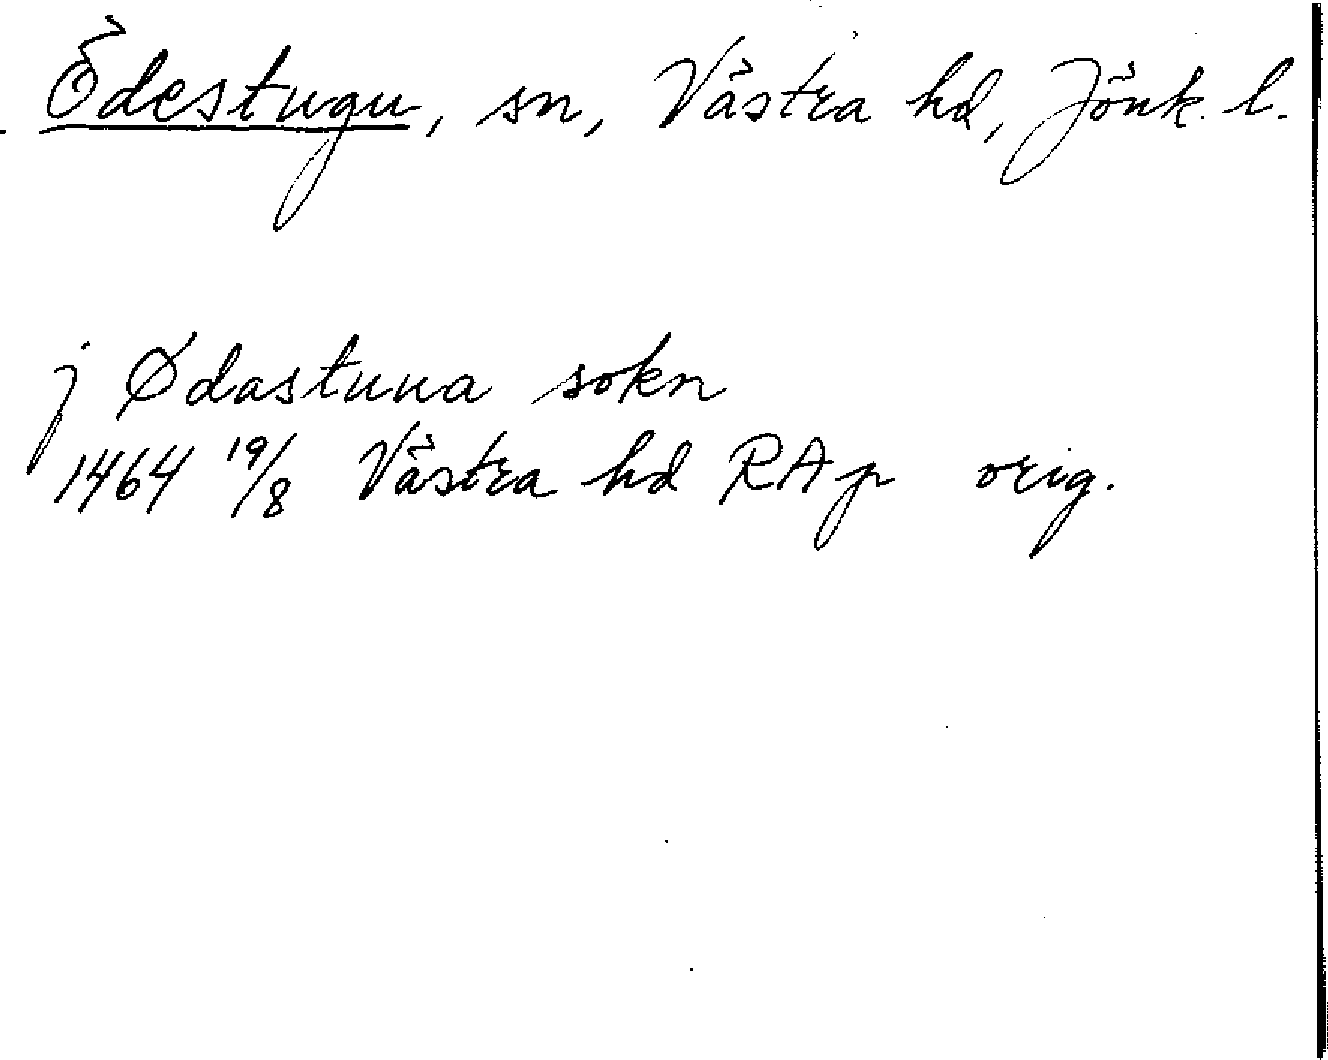 Ödestugu, sn, Västra hd, Jönk. l.
j Ødastuua sokn
1464 19/8 Västra hd RAp orig.